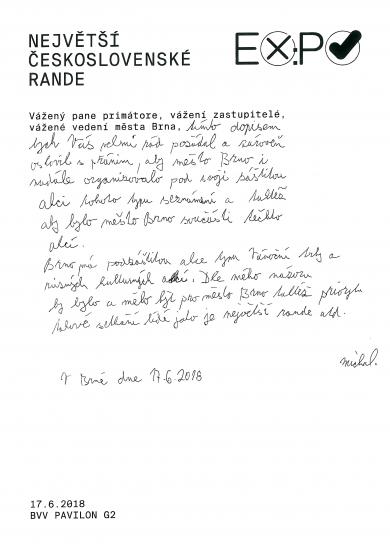 NEJVĚTŠÍ
ČESKOSLOVENSKÉ
RANDE
EXPO
Vážený pane primátore, vážení zastupitelé,
vážené vedení města Brna, tímto dopisem
bych Vás velmi rád požádal a zároveň
oslovil s přáním, aby město Brno i
nadále organizovalo pod svojí záštitou
akci tohoto typu seznámení a
aby bylo město Brno součástí těchto
akcí.
Brno má pod záštitou akce typu Vánoční trhy a
různých kulturních akcí. Dle mého názoru
by bylo a mělo být pro město Brno
takové setkání lidí jako je největší rande atd.
Michal.
V Brně dne 17.6.2018
17.6.2018
BVV PAVILON G2